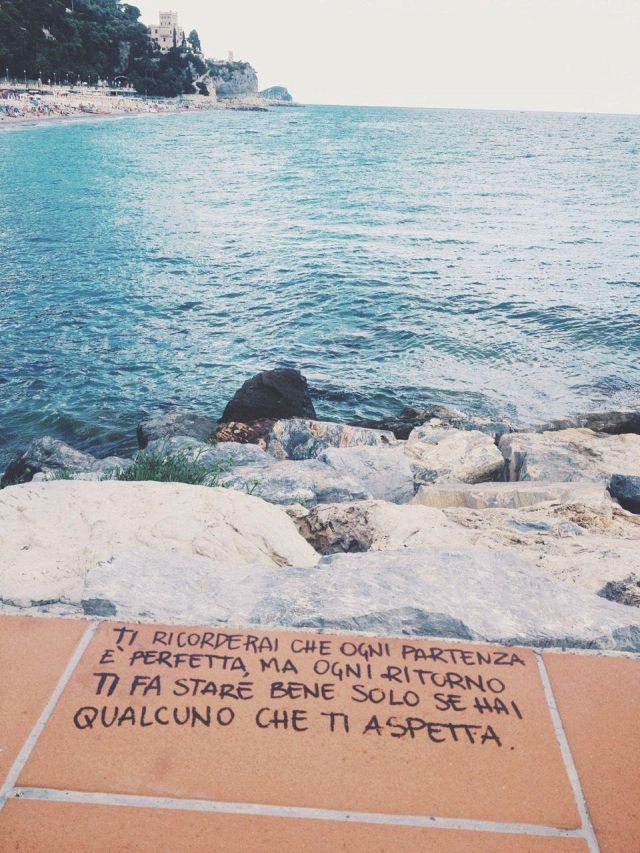 TI RICORDERAI CHE OGNI PARTENZA
È PERFETTA, MA OGNI RITORNO
TI FA STARE BENE SOLO SE HAI
QUALCUNO CHE TI ASPETTA.